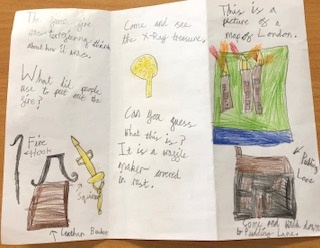 The
fire
was
about how it
What did people
use to put out the
fire?
Fire
Hook
Leather Bucket
Come and see
the X-Ray treasures.
Can you guess
what this is?
It is a
maker covered
in rust.
This is a
picture of a
map of London.
Pudding
Lane
Come and
to Pudding Lane.